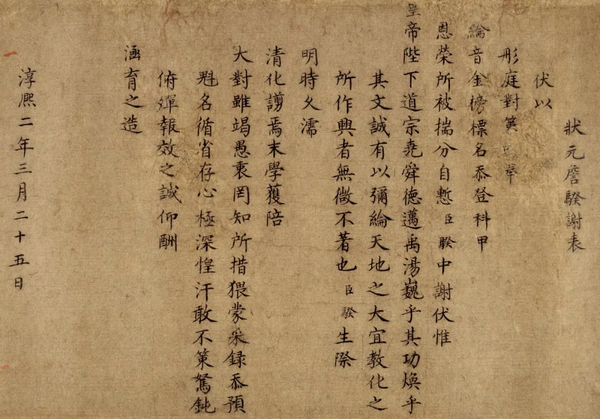 狀元詹騤謝表
伏以
彤庭對
綸音金榜標名忝登科甲
恩榮所被揣分自慙臣騤中謝伏惟
皇帝陛下道宗堯舜德邁禹湯巍乎其功煥乎
其文誠有以彌綸天地之大宜教化之
所作興者無微不著也臣騤生際
明時久濡
清化謭焉末學獲陪
大對雖竭愚衷罔知所措猥蒙采録忝預
魁名循省存心極深惶汗敢不策駑鈍
俯殫報效之誠仰酬
涵育之造
淳熙二年三月二十五日